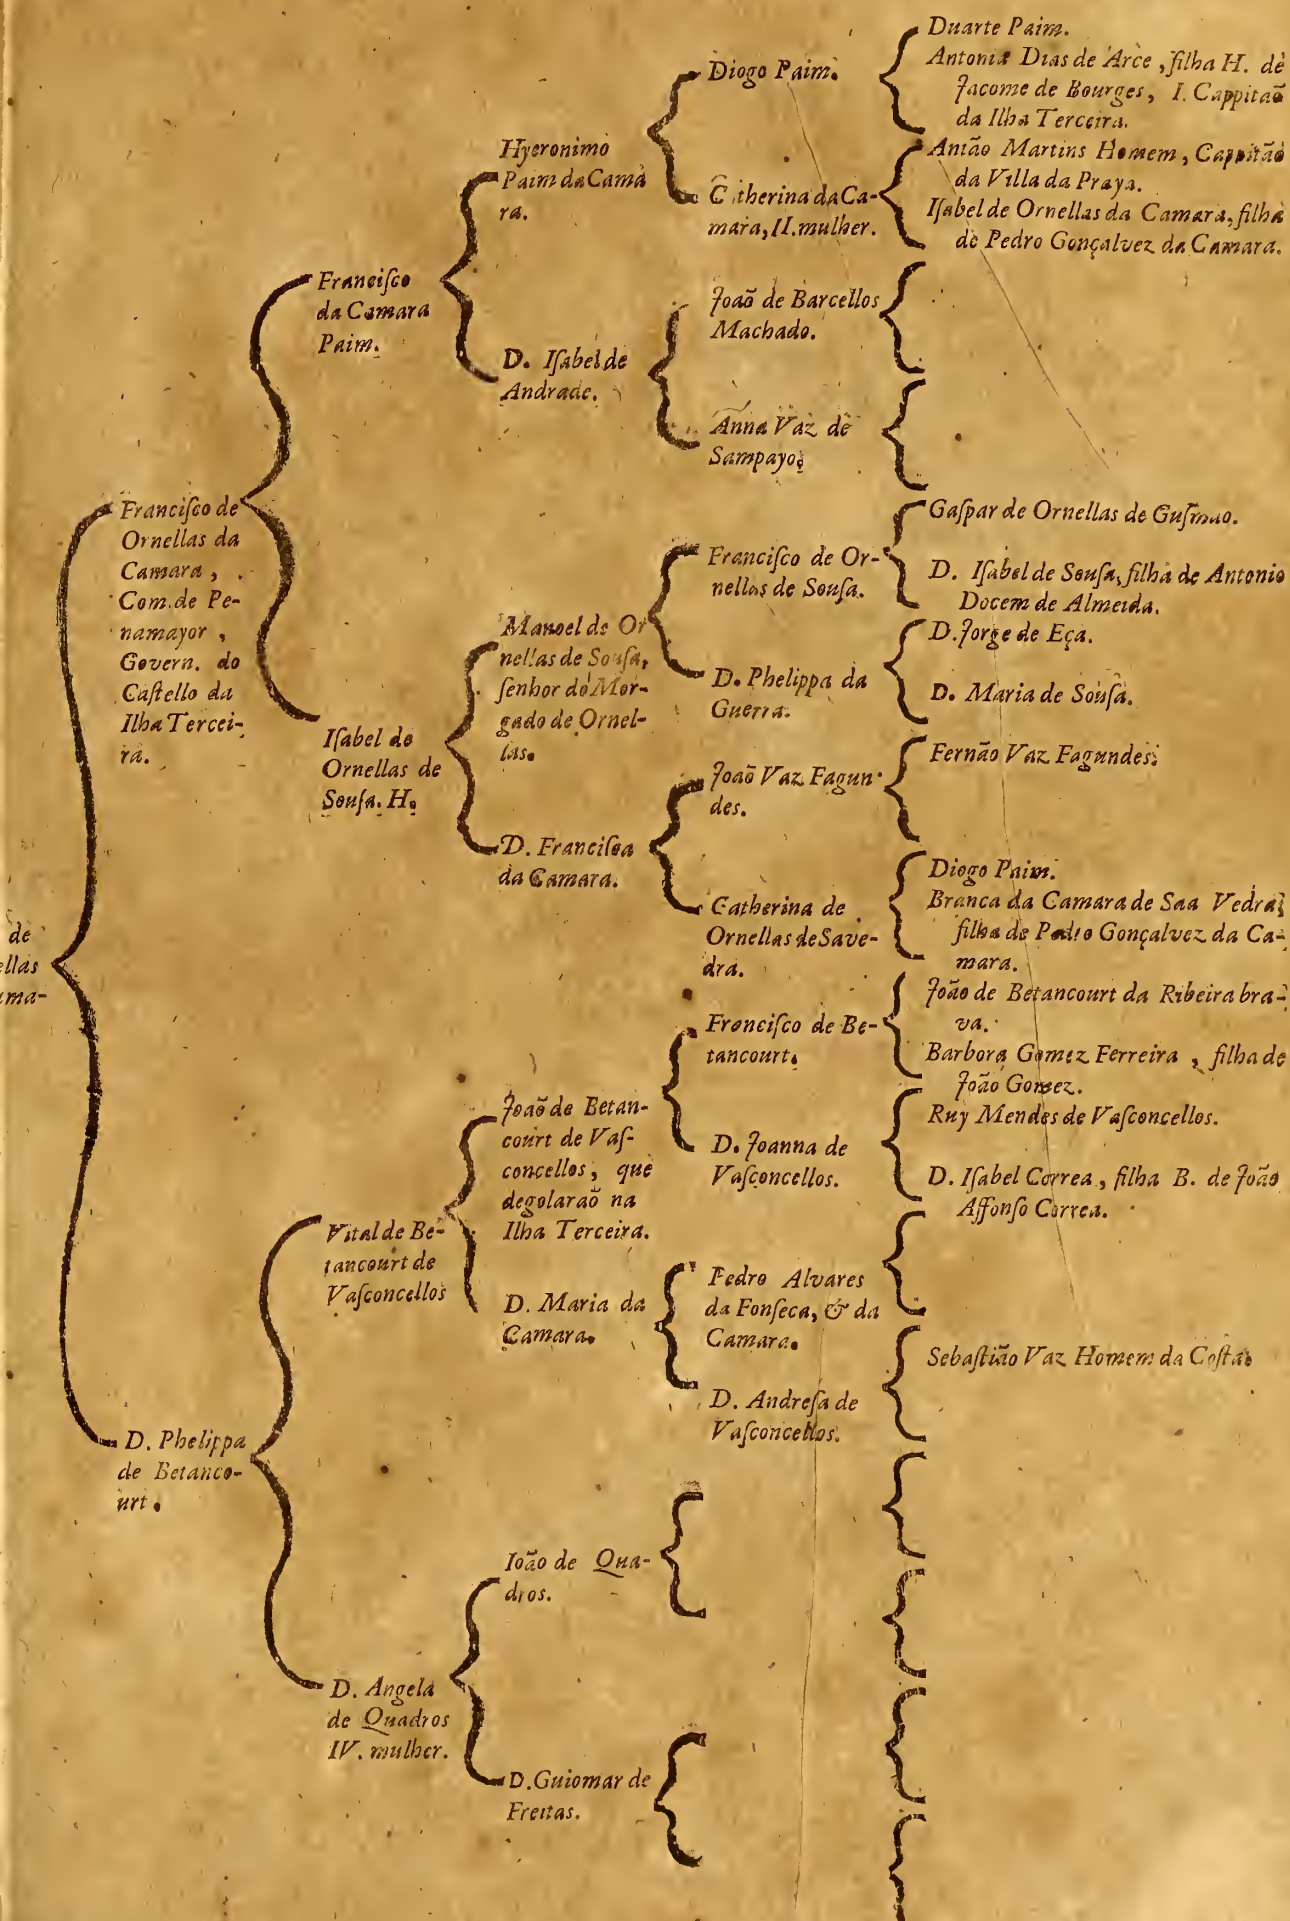 de
ellas
ama-
Francisco de
Ornellas da
Camara,
Com. de Pe-
namayor,
Govern. do
Castello da
Ilha Tercei-
ra.
D. Phelippa
de Betanco-
urt.
Franciſco
da Camara
Paim.
Iſabel de
Ornellas de
Souſa. H.
Vital de Be-
tancourt de
Vaſconcellos
D. Angela
de Quadros
IV. mulher.
Hyeronimo
Paim da Cama
ra.
D. Iſabel de
Andrade.
Manoel de Or
nellas de Souſa,
ſenhor do Mor-
gado de Ornel-
las.
D. Franciſca
da Camara.
Joaõ de Betan-
court de Vaſ-
concellos, que
degolaraõ na
Ilha Terceira.
D. Maria da
Camara.
Ioão de Qua-
dros.
D. Guiomar de
Freitas.
Diogo Paim.
Catherina da Ca-
mara, II. mulher.
Joaõ de Barcellos
Machado.
Anna Vaz de
Sampayo.
Franciſco de Or-
nellas de Souſa.
D. Phelippa da
Guerra.
Joaõ Vaz Fagun-
des.
Catherina de
Ornellas de Save-
dra.
Franciſco de Be-
tancourt.
D. Joanna de
Vaſconcellos.
Pedro Alvares
da Fonſeca, & da
Camara.
D. Andreſa de
Vaſconcellos.
Duarte Paim.
Antonia Dias de Arce, filha H. de
Jacome de Bourges, I. Cappitaõ
da Ilha Terceira.
Antão Martins Homem, Cappitão
da Villa da Praya.
Iſabel de Ornellas da Camara, filha
de Pedro Gonçalvez da Camara.
Gaſpar de Ornellas de Guſmao.
D. Iſabel de Souſa, filha de Antonio
Docem de Almeida.
D. Jorge de Eça.
D. Maria de Souſa.
Fernão Vaz Fagundes.
Diogo Paim.
Branca da Camara de Saa Vedra,
filha de Pedro Gonçalvez da Ca-
mara.
João de Betancourt da Ribeira bra-
va.
Barbora Gomez Ferreira, filha de
João Gomez.
Ruy Mendes de Vaſconcellos.
D. Iſabel Correa, filha B. de João
Affonſo Correa.
Sebaſtião Vaz Homem da Coſta.